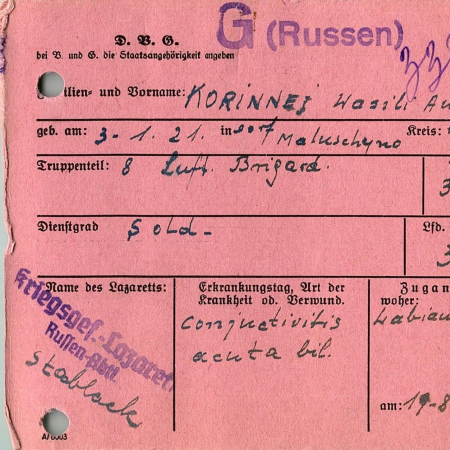 D. V. G.
G (Russen)
bei V. und G. die Staatsangehörigkeit angeben
ilien- und Vorname: KORINNEJ Wasili
geb. am: 3-1.21. in Maluschyno Kreis:
Truppenteil: 8 Luft. Brigard.
Dienstgrad Sold-
Lfd.
Name des Lazaretts:
Kriegsgef.-Lazarett
Russen-Abtl.
Stablack
Erkrankungstag, Art der
Krankheit od. Verwund.
conjuctivitis
acuta bil.
Zugan
woher:
Labiau
am: 19-8
A/0003